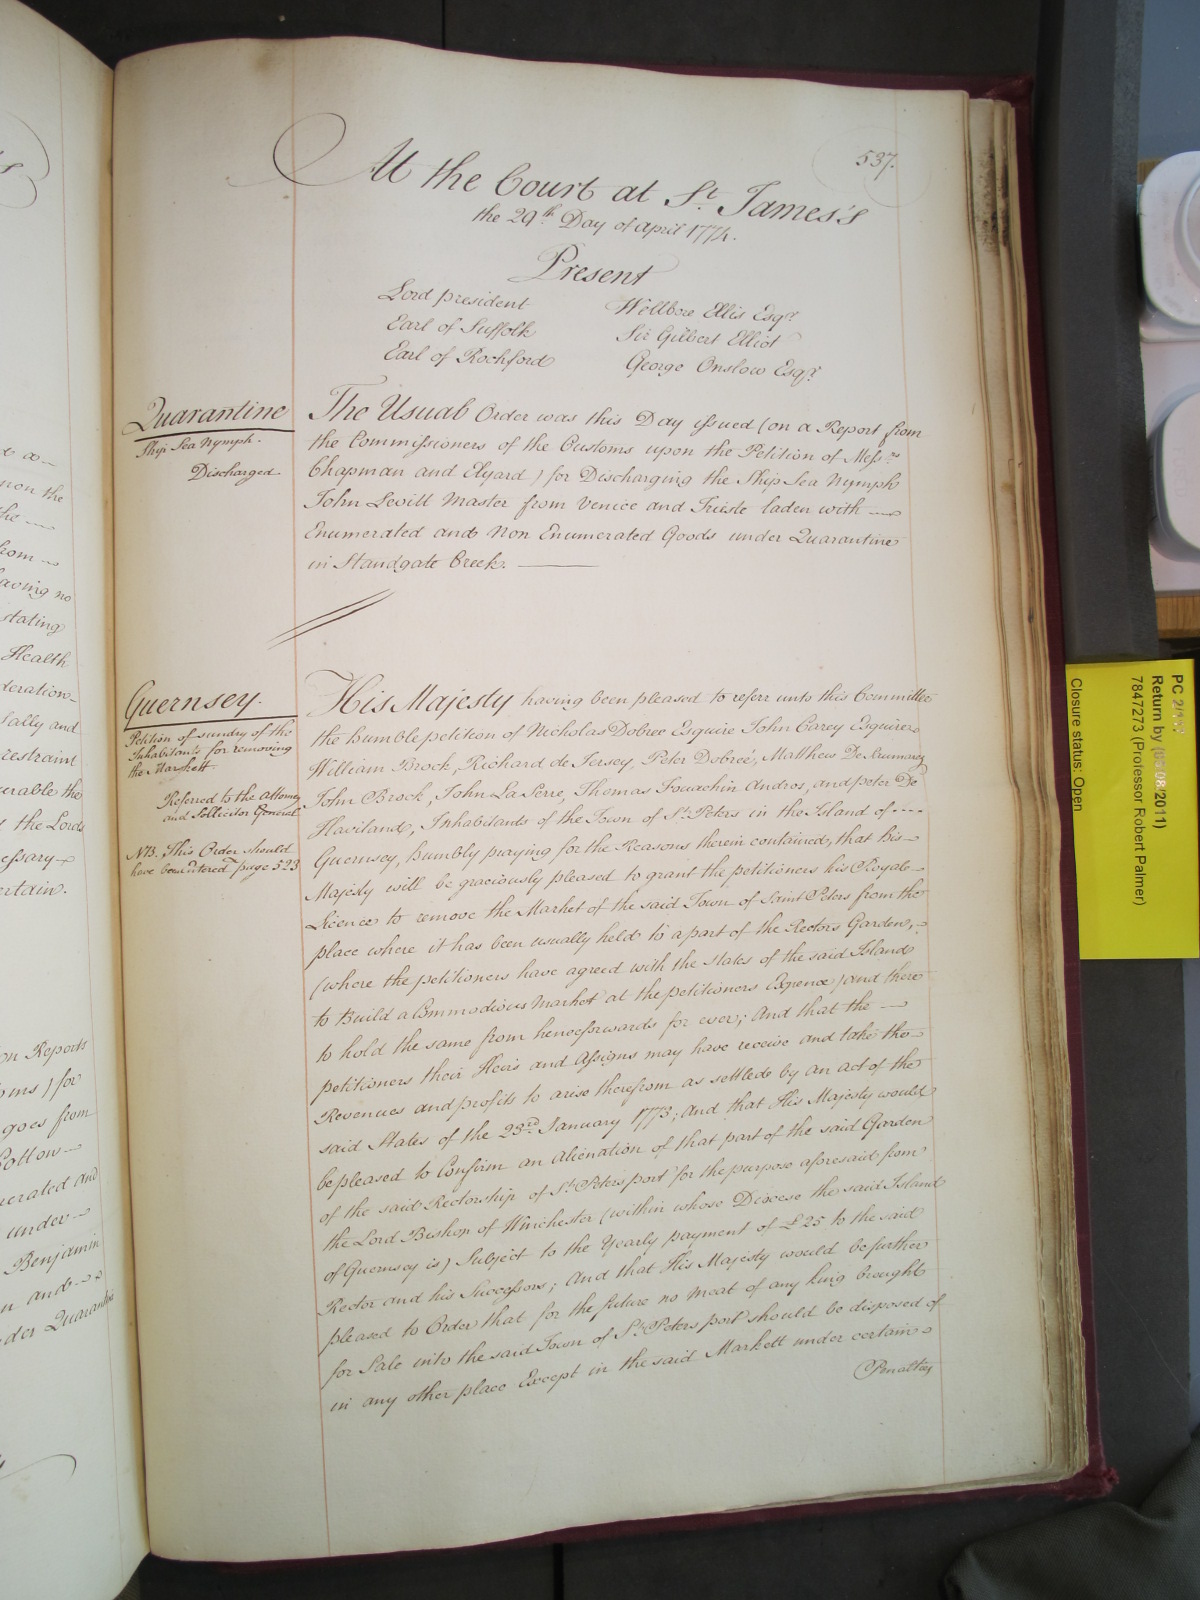 537.
At the Court at St. James's
the 29th Day of April 1774.
Present
Lord President
Earl of Suffolk
Earl of Rochford
Wellbore Ellis Esqr.
Sir Gilbert Elliot
George Onslow Esqr.
Quarantine
Ship Sea Nymph.
Discharged
The Usual Order was this Day issued (on a Report from
the Commissioners of the Customs upon the Petition of Messrs.
Chapman and Elyard) for Discharging the Ship Sea Nymph
John Levitt Master from Venice and Trieste laden with
Enumerated and Non Enumerated Goods under Quarantine
in Standgate Creek.
Guernsey.
Petition of sundry of the
Inhabitants for removing
the Markett
Referred to the Attorney
and Sollicitor General
NB. This Order should
have been entered page 523
His Majesty having been pleased to referr unto this Committee
the humble petition of Nicholas Dobree Esquire John Carey Esquire
William Brock, Richard de Jersey, Peter Dobreé, Matthew De Saumarez
John Brock, John La Serre, Thomas Fouachin Andros, and peter De
Haviland, Inhabitants of the Town of St. Peters in the Island of
Guernsey, humbly praying for the Reasons therein contained, that his
Majesty will be graciously pleased to grant the petitioners his Royale
Licence to remove the Market of the said Town of Saint Peters from the
place where it has been usually held to a part of the Rectors Garden,
(where the petitioners have agreed with the states of the said Island
to Build a Commodious Market at the petitioners Expence) and there
to hold the same from henceforwards for ever; And that the
petitioners their Heirs and Assigns may have receive and take the
Revenues and profits to arise therefrom as settled by an act of the
said States of the 23rd January 1773; And that His Majesty would
be pleased to Confirm an Alienation of that part of the said Garden
of the said Rectorship of St. Peters port for the purpose aforesaid from
the Lord Bishop of Winchester (within whose Diocese the said Island
of Guernsey is) Subject to the Yearly payment of £25 to the said
Rector and his Successors; And that His Majesty would be further
pleased to Order that for the future no meat of any king brought
for Sale into the said Town of St. Peters port should be disposed of
in any other place Except in the said Markett under certain
Penalties
on the
the
from
having no
stating
Health
deration
fally and
restraint
urable the
the Lords
cessary
ertain.
on Reports
oms) for
goes from
Cotton
merated and
under
Benjamin
n and
der Quarantine
PC 2/117
Return by (05/08/2011)
7847273 (Professor Robert Palmer)
Closure status: Open